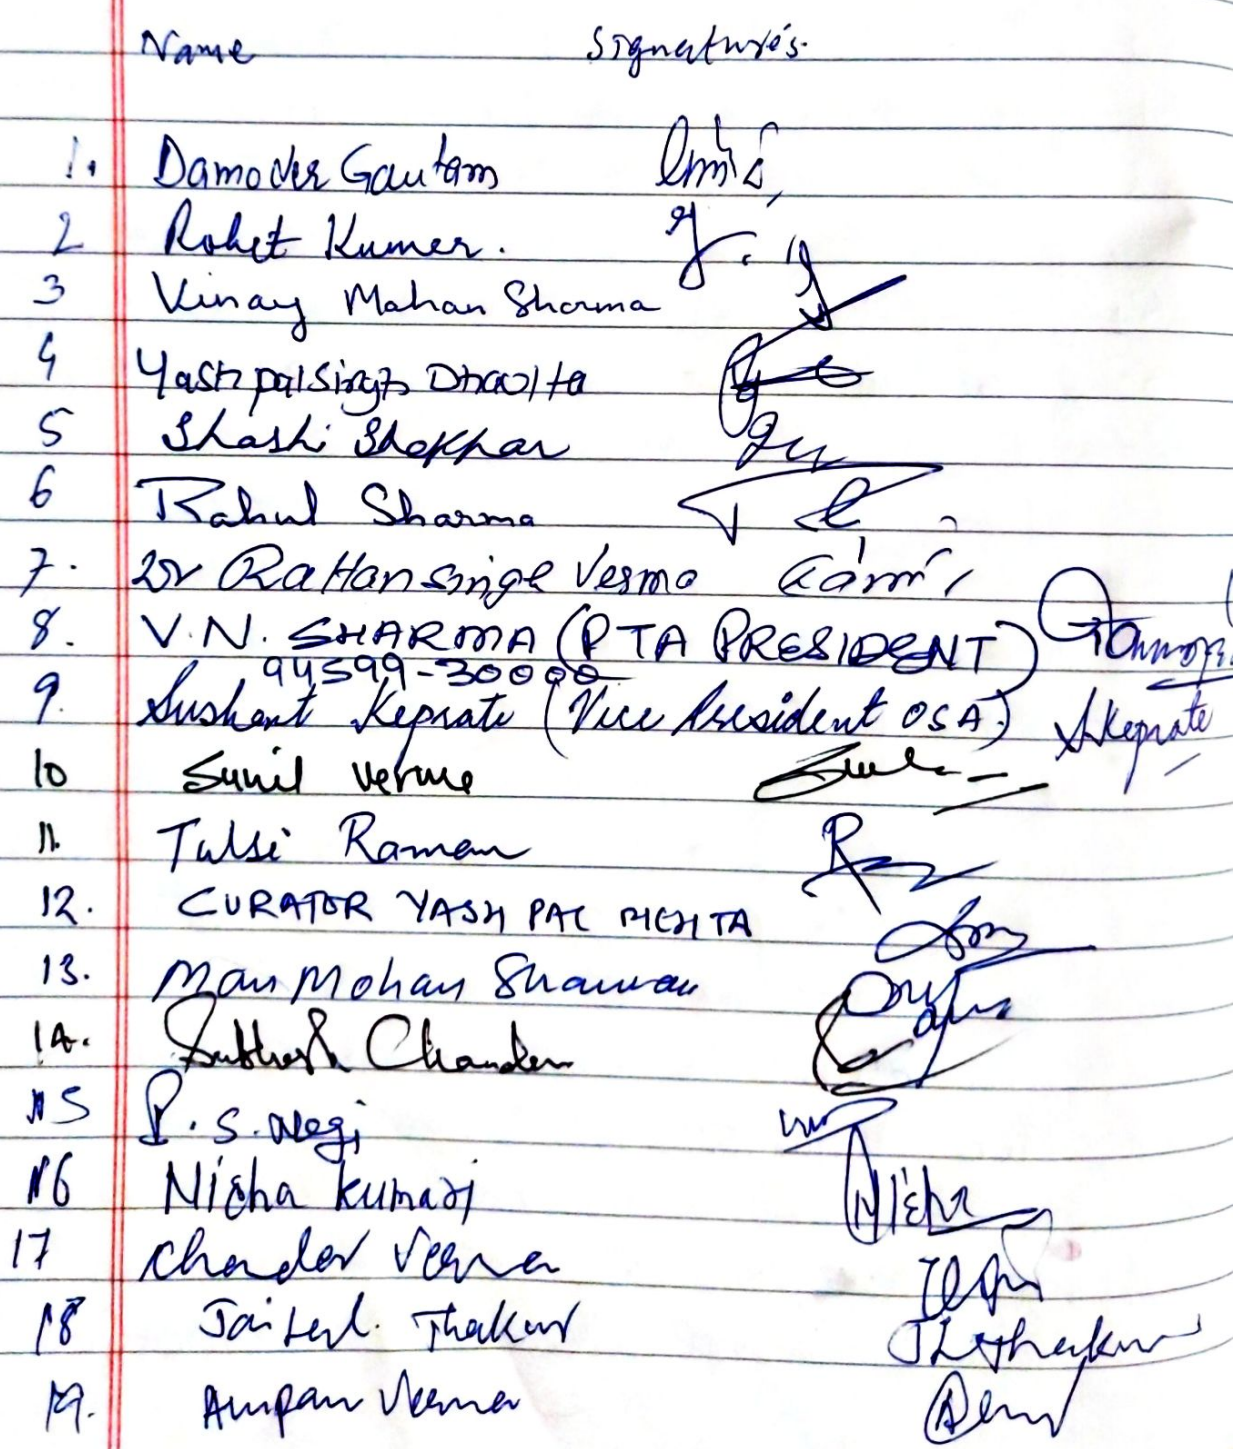 Name Signatures.
1. Damoder Gautam
2 Rohit Kumar.
3 Vinay Mohan Sharma
4 Yashpal Singh Dhaulta
5 Shashi Shekhar
6 Rahul Sharma
7. Rattan Singh Verma
8. V.N. SHARMA (PTA PRESIDENT)
94599-30000
9. Sushant Keprate (Vice President OSA) SKeprate
10 Sunil Verma
11. Tulsi Raman
12. CURATOR YASH PAL MEHTA
13. Man Mohan Sharma
14. Subhash Chander
15 P.S. Negi
16 Nisha Kumari Nisha
17 Chander Verma
18 Jai Lal. Thakur JLThakur
19. Anupam Verma